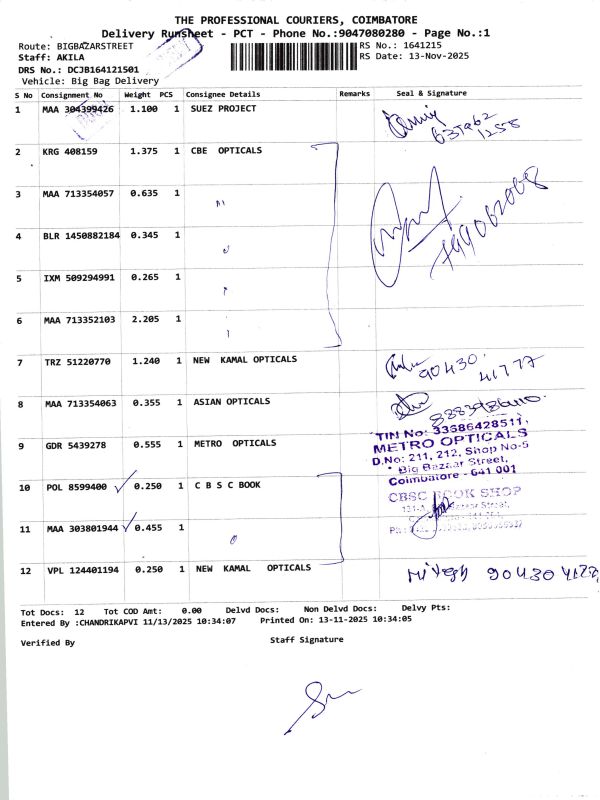 THE PROFESSIONAL COURIERS, COIMBATORE
Delivery RunSheet - PCT - Phone No.:9047080280 - Page No.:1
Route: BIGBAZARSTREET RS No.: 1641215
Staff: AKILA RS Date: 13-Nov-2025
DRS No.: DCJB164121501
Vehicle: Big Bag Delivery
S No Consignment No Weight PCS Consignee Details Remarks Seal & Signature
1 MAA 304399426 1.100 1 SUEZ PROJECT
2 KRG 408159 1.375 1 CBE OPTICALS
3 MAA 713354057 0.635 1
4 BLR 1450882184 0.345 1
5 IXM 509294991 0.265 1
6 MAA 713352103 2.205 1
7 TRZ 51220770 1.240 1 NEW KAMAL OPTICALS 90430
41777
8 MAA 713354063 0.355 1 ASIAN OPTICALS
TIN No: 33586428511,
9 GDR 5439278 0.555 1 METRO OPTICALS METRO OPTICALS
D.No: 211, 212, Shop No-5
Big Bazaar Street,
Coimbatore - 641 001
10 POL 8599400 0.250 1 C B S C BOOK CBSC BOOK SHOP
11 MAA 303801944 0.455 1
12 VPL 124401194 0.250 1 NEW KAMAL OPTICALS
Tot Docs: 12 Tot COD Amt: 0.00 Delvd Docs: Non Delvd Docs: Delvy Pts:
Entered By :CHANDRIKAPVI 11/13/2025 10:34:07 Printed On: 13-11-2025 10:34:05
Verified By Staff Signature